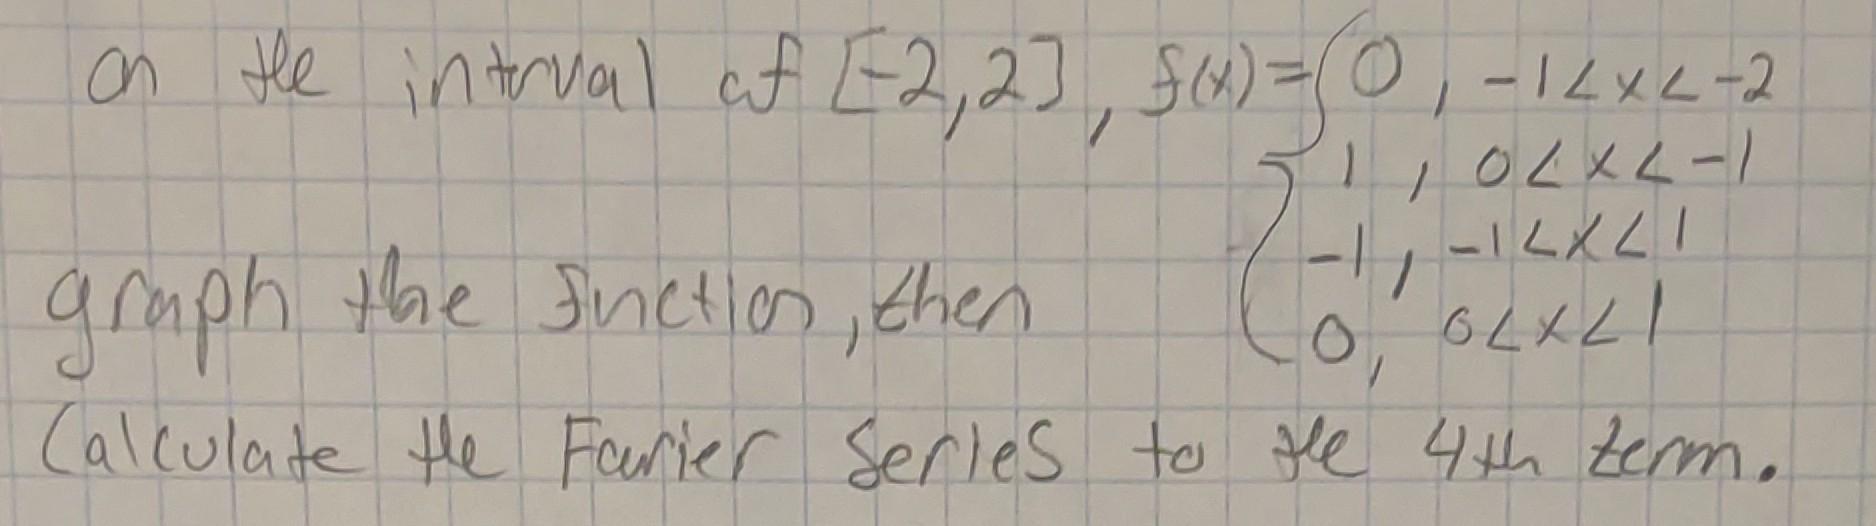 on the intrval of [-2,2], f(x)={0, -1<x<-2
1, 0<x<-1
-1, -1<x<1
graph the function, then
0, 0<x<1
Calculate the Fourier Series to the 4th term.